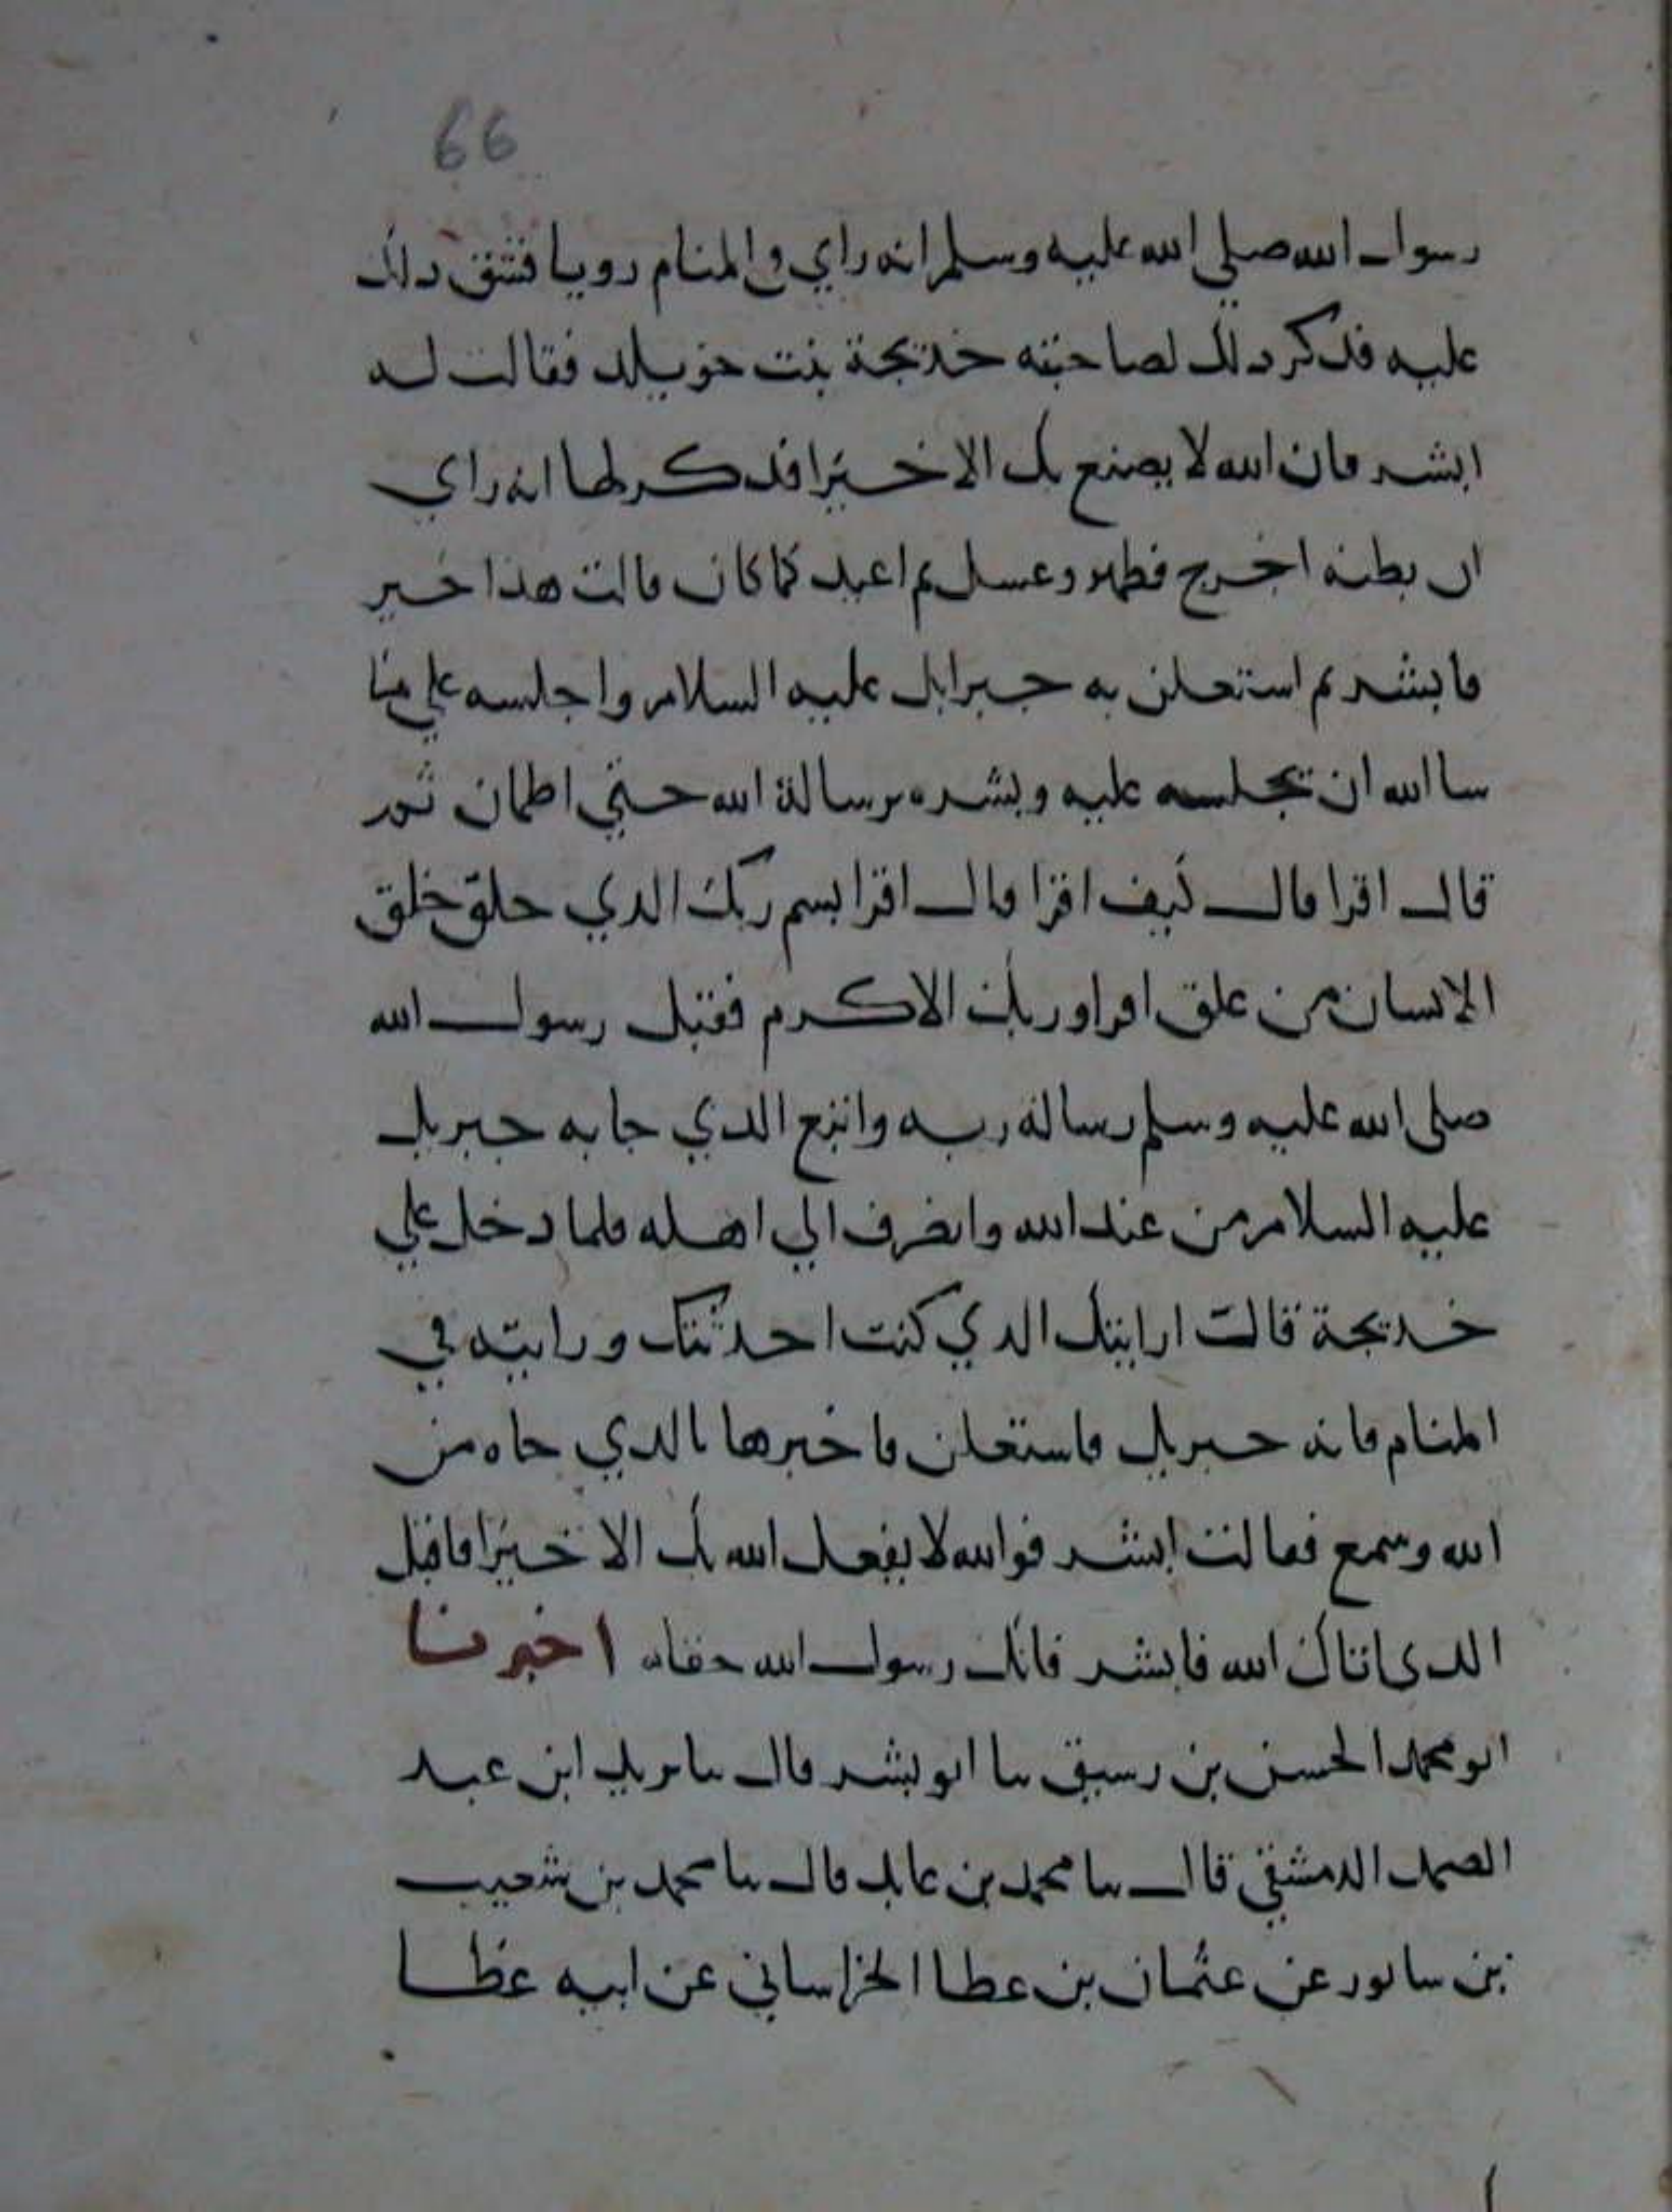 66
رسول الله صلي الله عليه وسلم انه راي في المنام رويا فشق دلك
عليه فدكر دلك لصاحبته خديجة بنت خويلد فقالت له
ابشر فان الله لا يصنع بك الا خيرا فدكر لها انه راي
ان بطنه اخرج فطهر وغسل ثم اعيد كما كان قالت هذا خير
فابشر ثم استعلن به جبرايل عليه السلام واجلسه علي ما
شا الله ان يجلسه عليه وبشره برسالة الله حتي اطمان ثم
قال اقرا قال كيف اقرا قال اقرا بسم ربك الدي خلق خلق
الانسان من علق اقرا وربك الاكرم فقبل رسول الله
صلي الله عليه وسلم رسالة ربه واتبع الدي جا به جبريل
عليه السلام من عند الله وانصرف الي اهله فلما دخل علي
خديجة قالت ارايتك الدي كنت احدثتك ورايته في
المنام فانه جبريل فاستعلن فاخبرها بالدي جاه من
الله وسمع فقالت ابشر فوالله لا يفعل الله بك الا خيرا فاقبل
الدى اتاك الله فابشر فانك رسول الله حقا اخبرنا
ابو محمد الحسن بن رسيق سا ابو بشر قال سا يزيد ابن عبد
الصمد الدمشقي قال سا محمد بن عايد قال سا محمد بن شعيب
بن سابور عن عثمان بن عطا الخراساني عن ابيه عطا